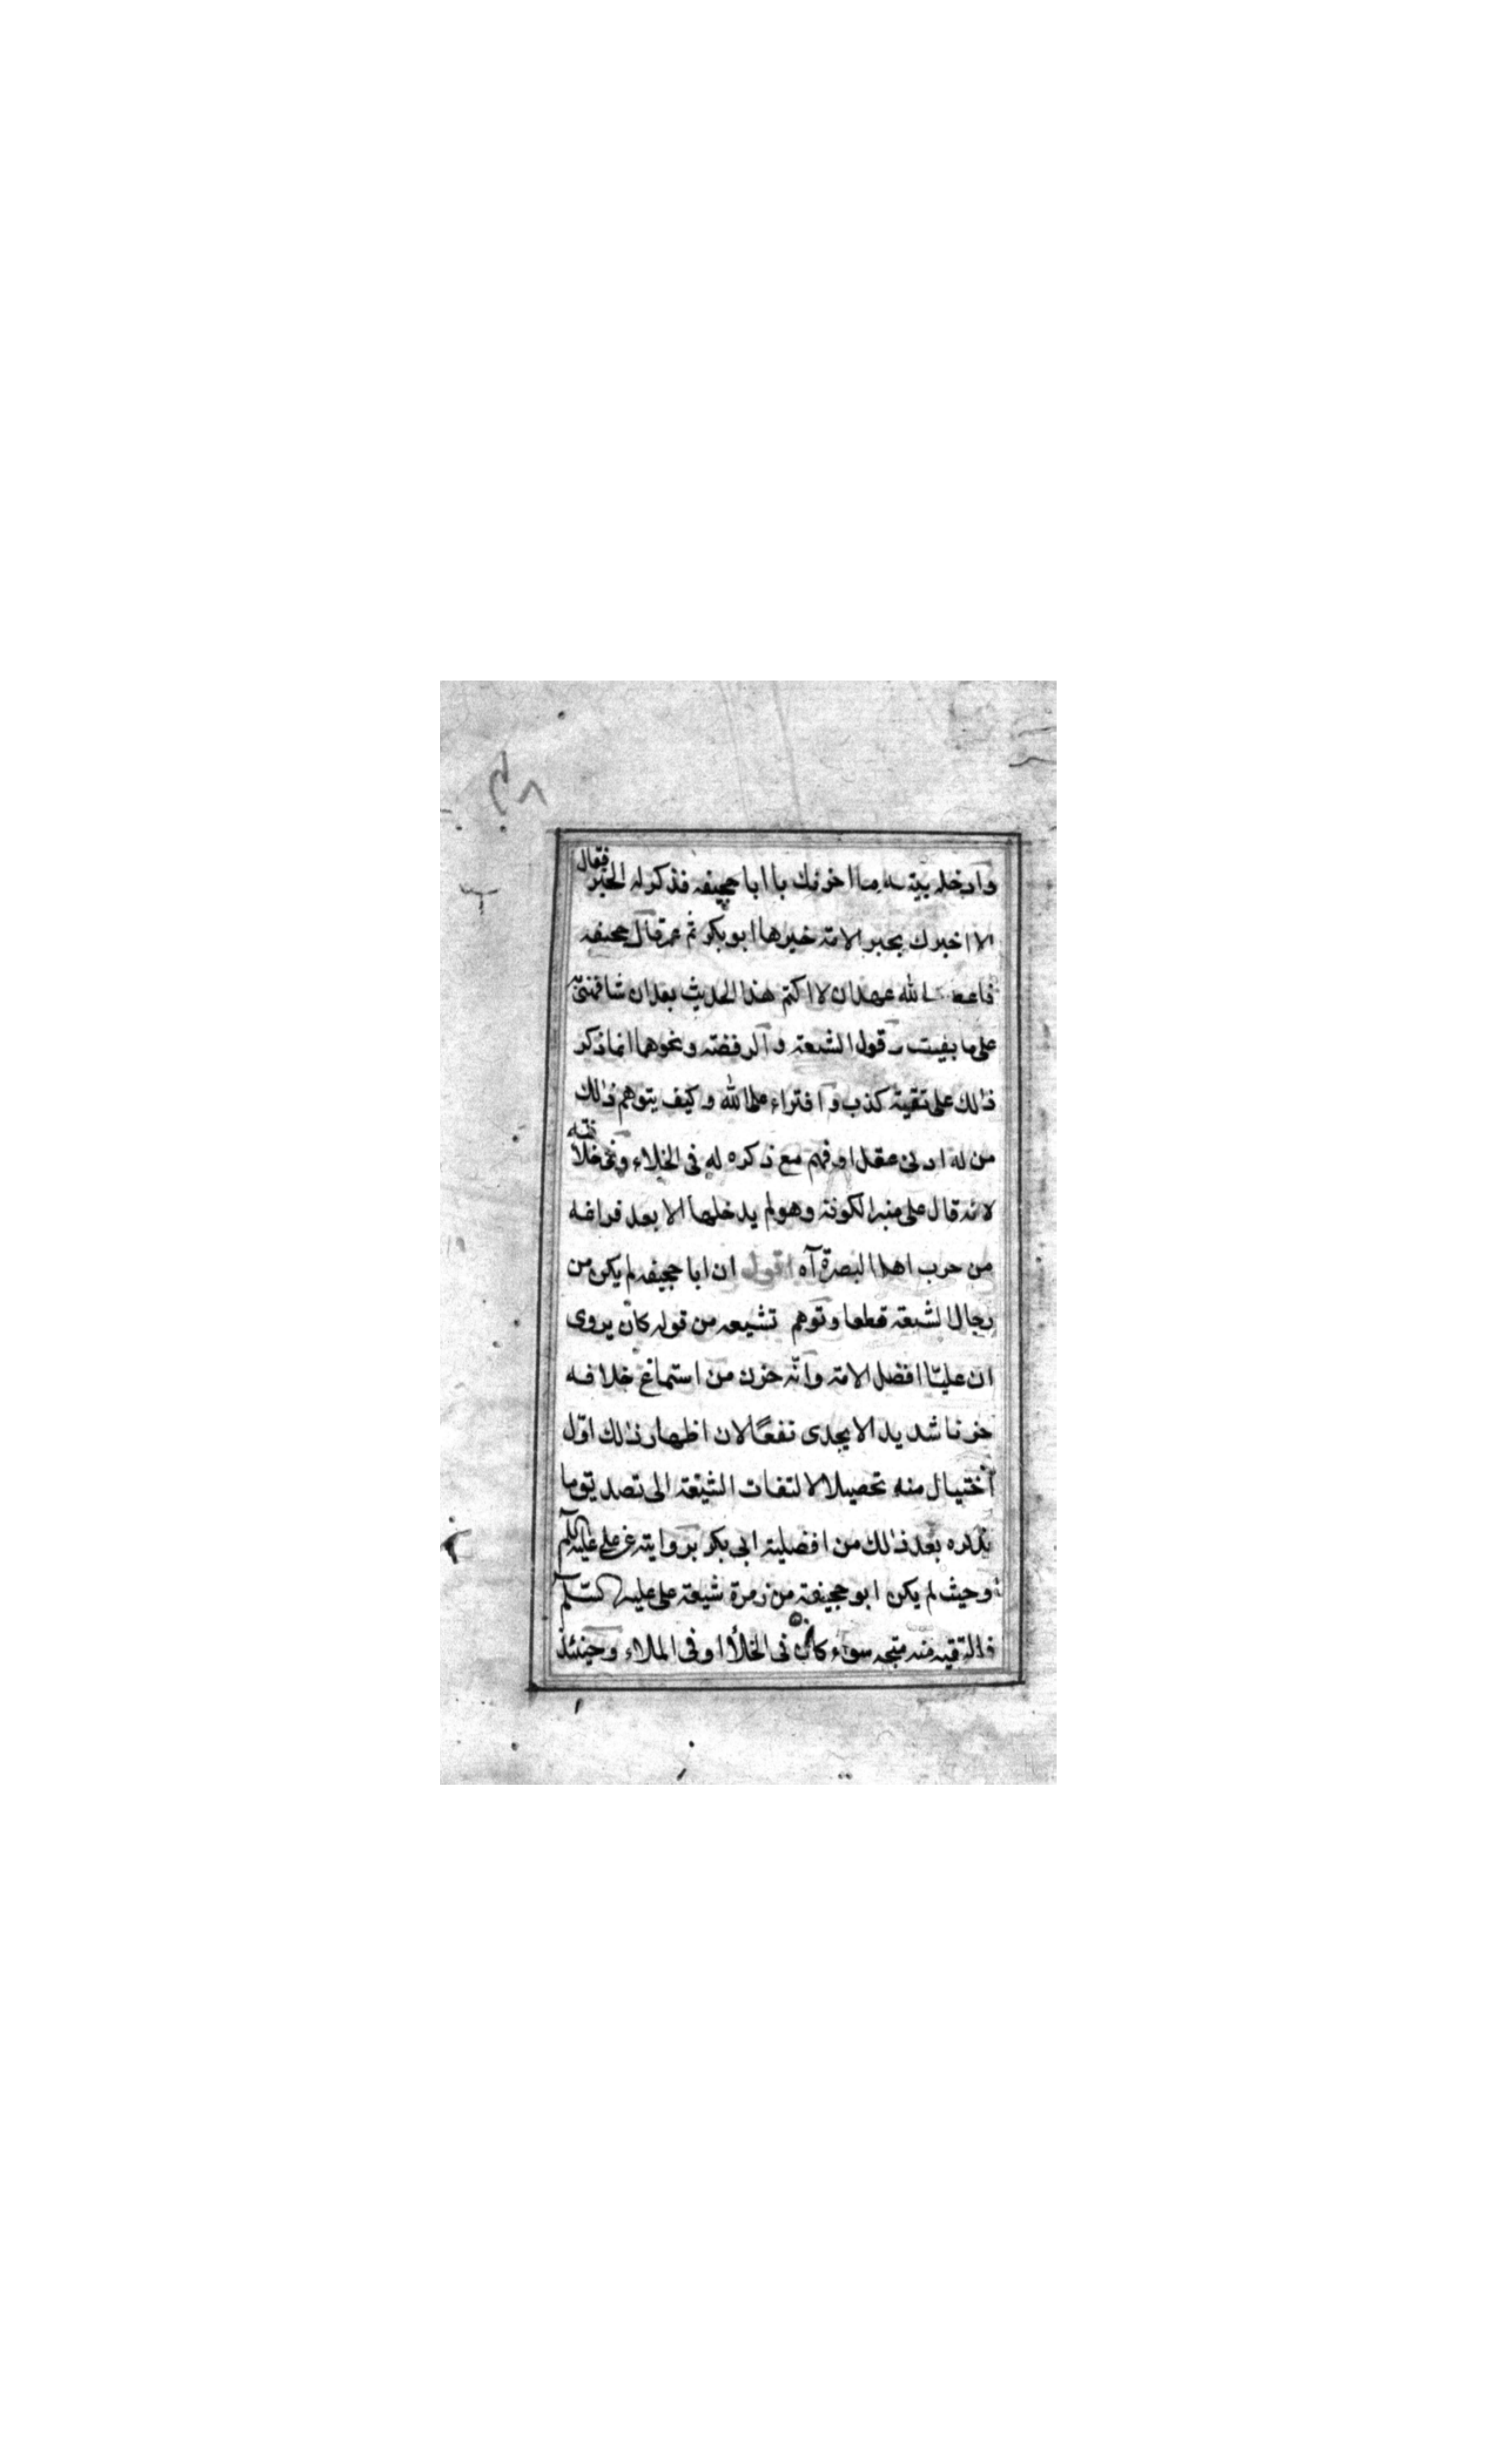 وادخله بيته ما احزنك يا ابا جحيفه فذكر له الخبر فقال
الا اخبرك بخير الامة خيرها ابوبكر ثم عمر قال جحيفه
فاعط الله عهدا ان لا اكتم هذا الحديث بعد ان شافهنى به
على ما بقيت قول الشيعة والرفضة ونحوهما انما ذكر
ذلك على تقية كذب وافتراء على الله وكيف يتوهم ذلك
من له ادنى عقل او فهم مع ذكره له فى الخلاء وفى خلافته
لانه قال على منبر الكوفة وهو لم يدخلها الا بعد فراغه
من حرب اهل البصرة آه اقول ان ابا جحيفه لم يكن من
رجال الشيعة قطعا وتوهم تشيعه من قوله كان يروى
ان عليّا افضل الامة وانّه حزن من استماع خلافه
حزنا شديدا لا يجدى نفعًا لان اظهار ذلك اوّل
اختيال منه تحصيلا لالتفات الشيعة الى تصديق ما
يذكره بعد ذلك من افضلية ابى بكر بروايته عن على عليه السلم
وحيث لم يكن ابو جحيفة من زمرة شيعة على عليه السلم
فالتقيه منه متجه سواء كان فى الخلأ او فى الملاء وحينئذ